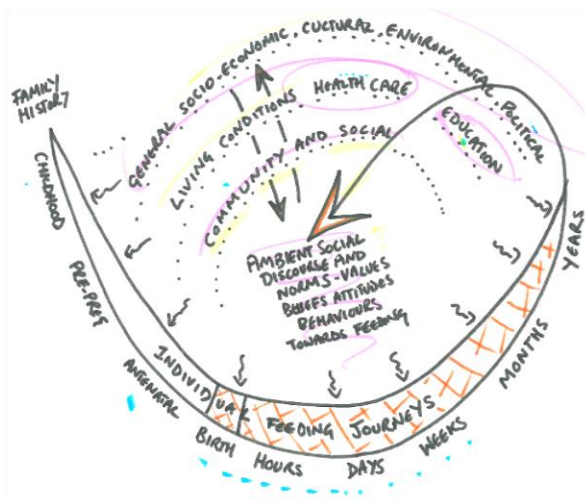 GENERAL SOCIO-ECONOMIC, CULTURAL, ENVIRONMENTAL, POLITICAL
LIVING CONDITIONS, HEALTH CARE
EDUCATION
COMMUNITY AND SOCIAL
AMBIENT SOCIAL
DISCOURSE AND
NORMS-VALUES
BELIEFS ATTITUDES
BEHAVIOURS
TOWARDS FEEDING
FAMILY
HISTORY
CHILDHOOD
PRE-PREG
ANTENATAL
BIRTH
HOURS
DAYS
WEEKS
MONTHS
YEARS
INDIVIDUAL FEEDING JOURNEYS